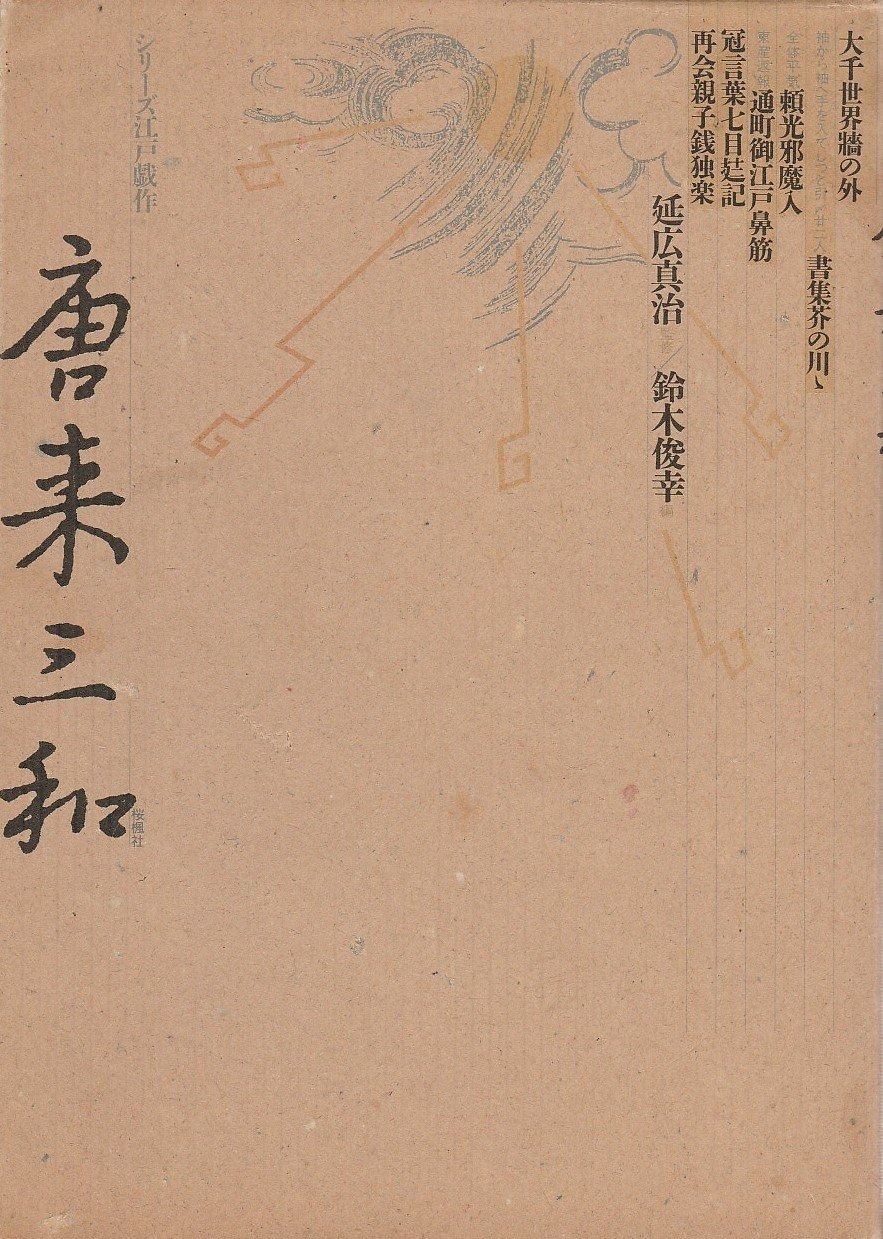 大千世界牆の外
書集芥の川ゝ
全体平気
頼光邪魔入
通町御江戸鼻筋
冠言葉七目㐂記
再会親子銭独楽
延広真治 / 鈴木俊幸
シリーズ江戸戯作
唐来三和
桜楓社